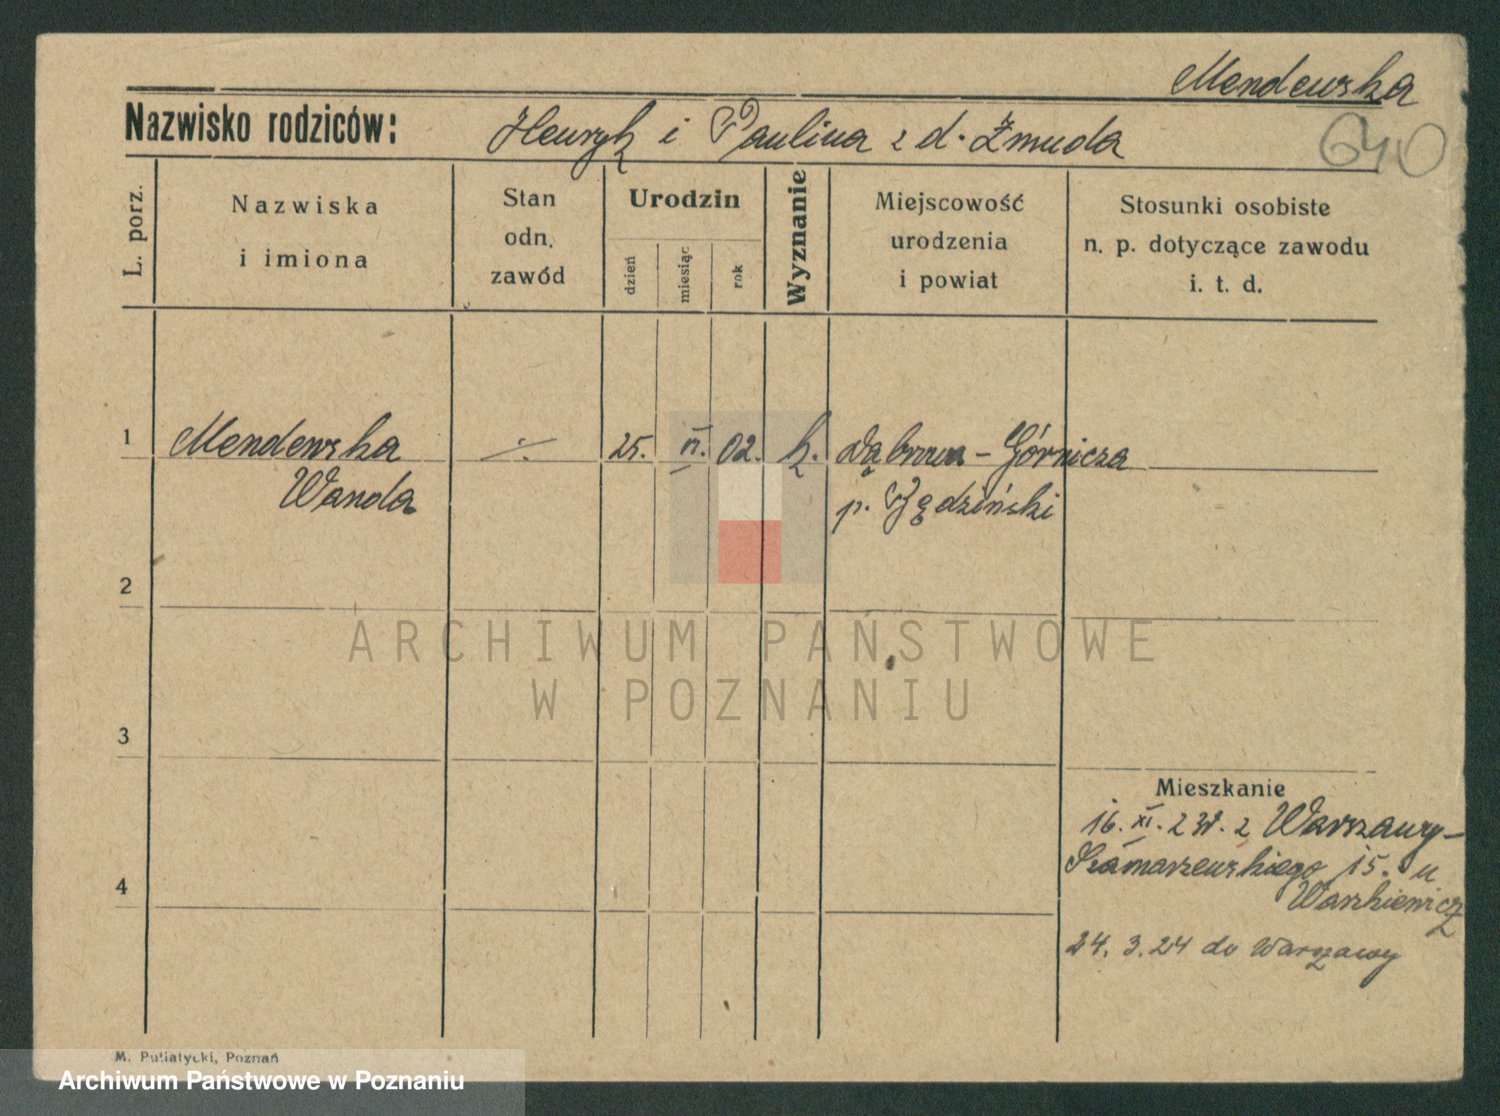 Mendewska
Nazwisko rodziców: Henryk i Paulina z d. Żmuda
640
L. porz.
Nazwiska
i imiona
Stan
odn.
zawód
Urodzin
dzień
miesiąc
rok
Wyznanie
Miejscowość
urodzenia
i powiat
Stosunki osobiste
n. p. dotyczące zawodu
i. t. d.
1 Mendewska ÷ 25. VI. 02. k. Dąbrowa-Górnicza
Wanda p. Będziński
2
ARCHIWUM PAŃSTWOWE
W POZNANIU
3
Mieszkanie
16. XI. 23. z Warszawy-
Szamarzewskiego 15. u
4
Waszkiewicz
24. 3. 24 do Warszawy
M. Putiatycki, Poznań
Archiwum Państwowe w Poznaniu